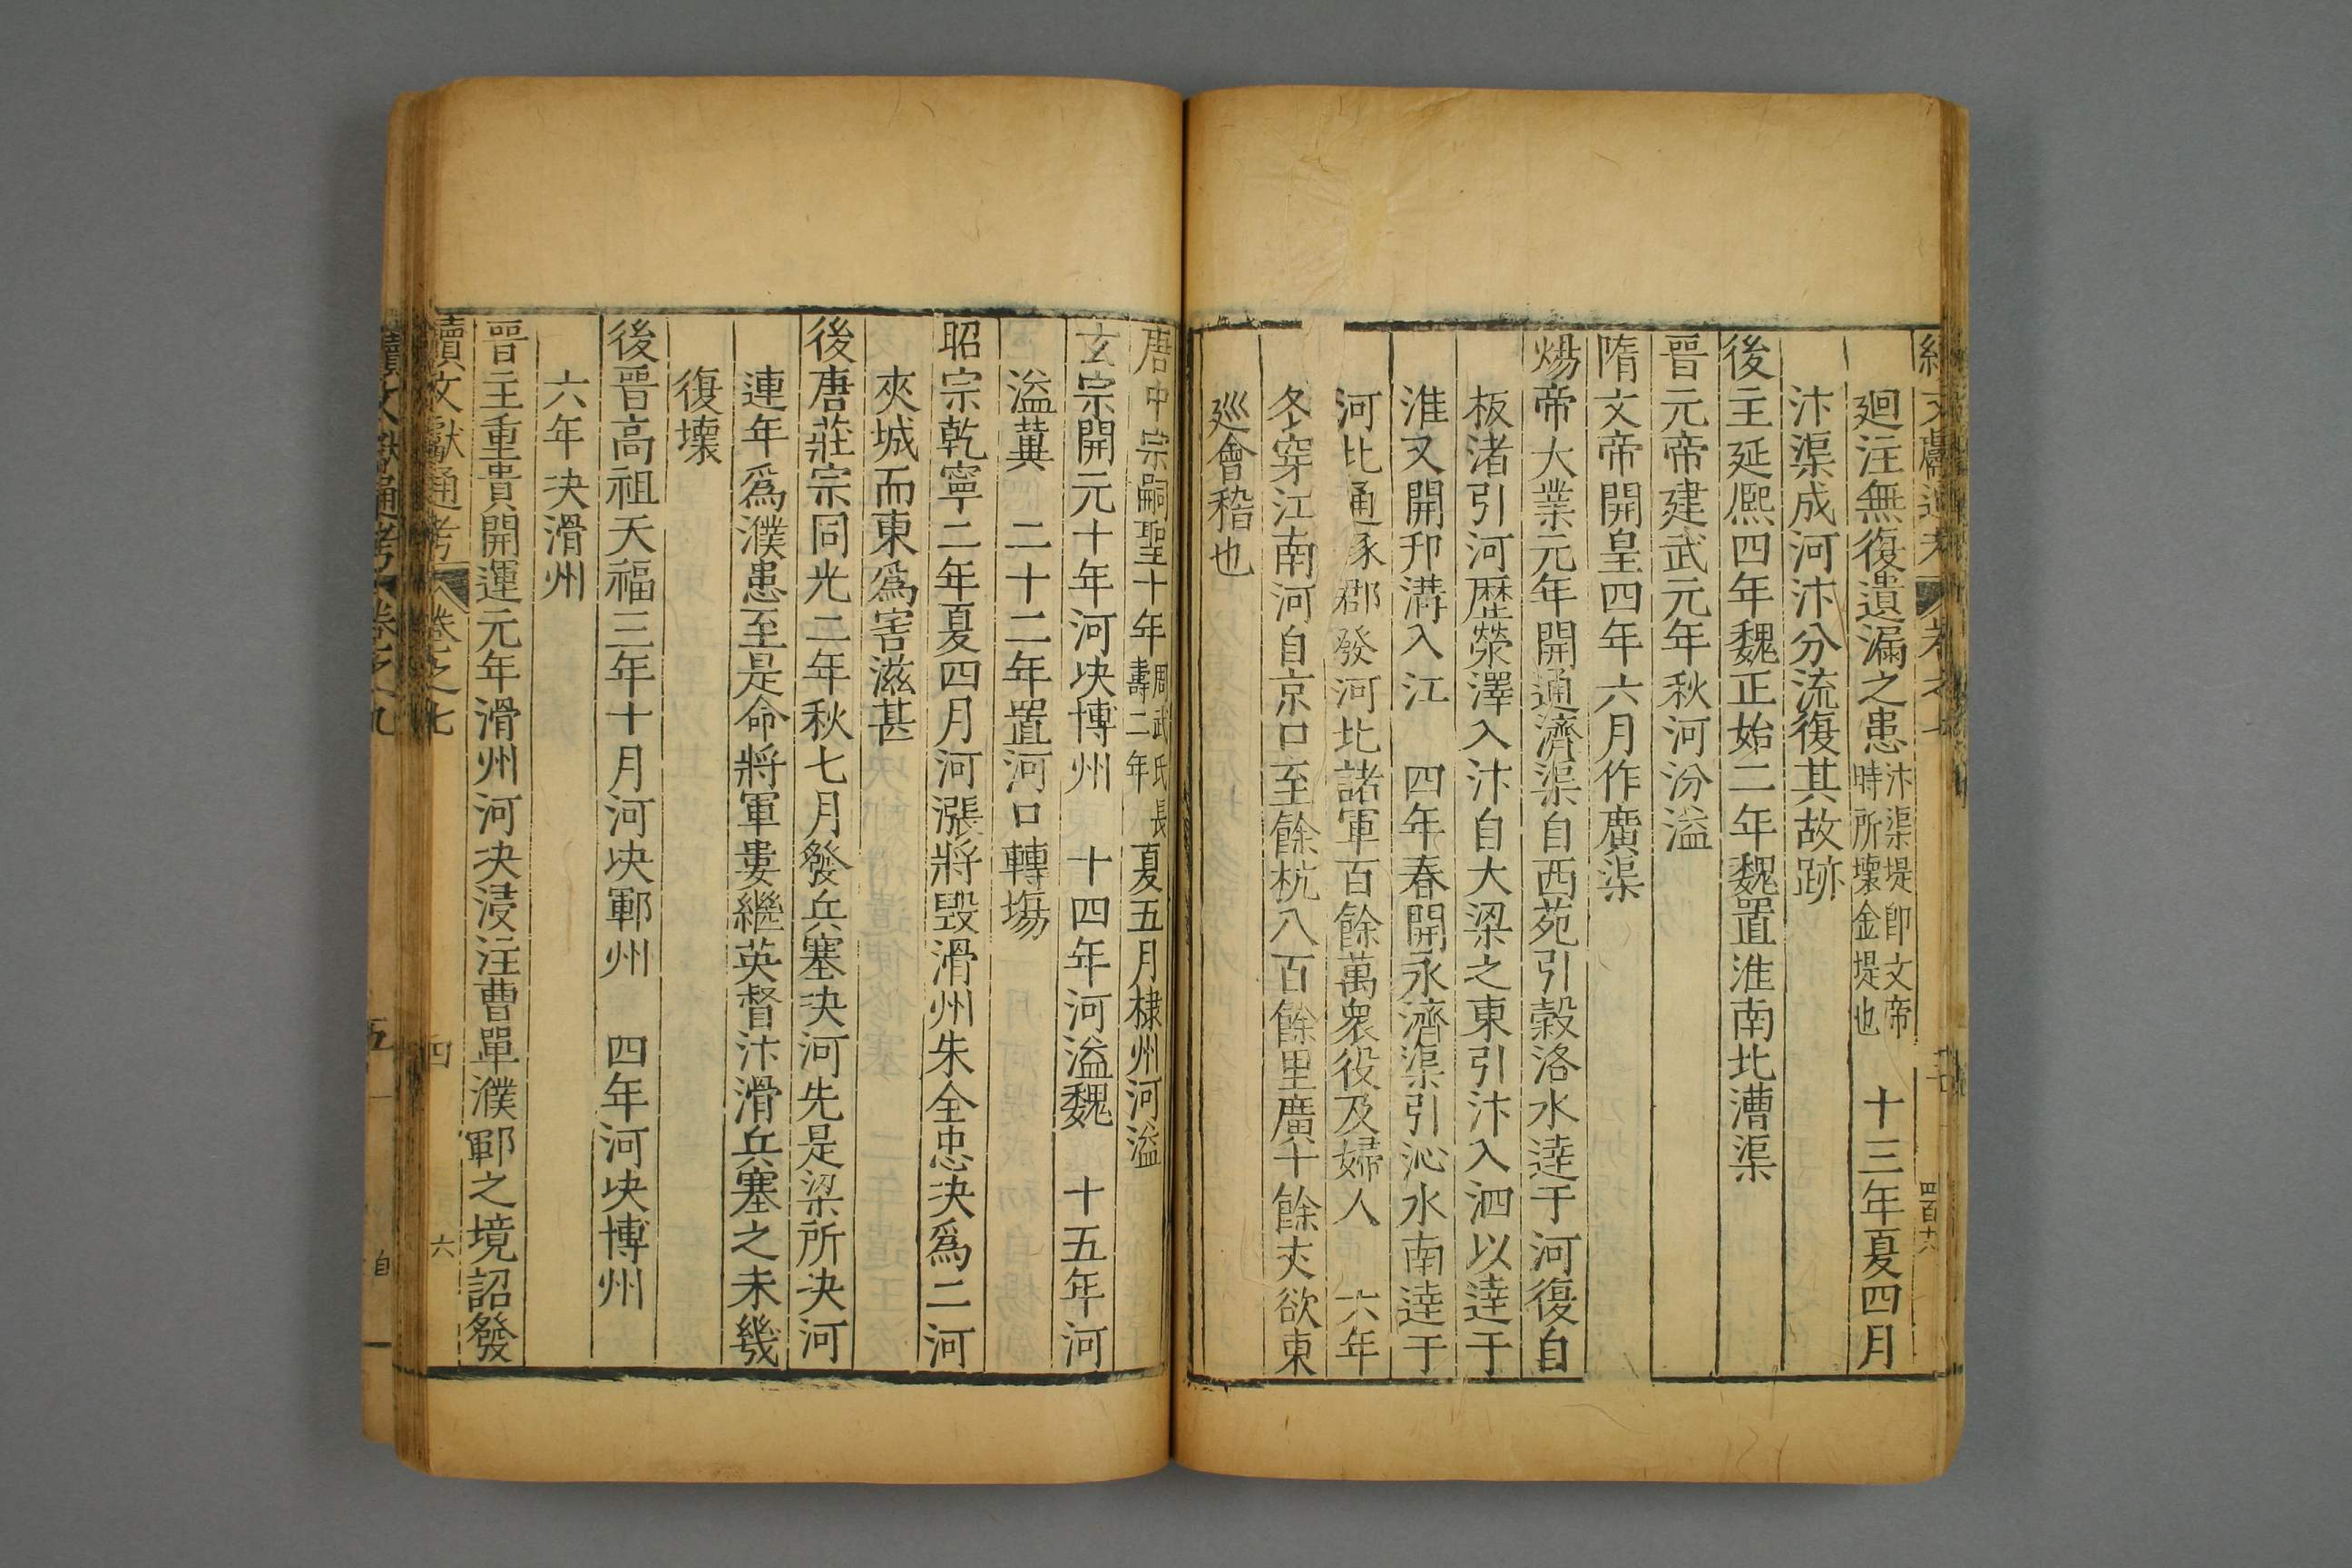 廻注無復遺漏之患汴渠堤卽文帝時所壞金堤也 十三年夏四月
汴渠成河汴分流復其故跡
後主延熈四年魏正始二年魏置淮南北漕渠
晉元帝建武元年秋河汾溢
隋文帝開皇四年六月作廣渠
煬帝大業元年開通濟渠自西苑引穀洛水逹于河復自
板渚引河歴滎澤入汴自大梁之東引汴入泗以逹于
淮又開邗溝入江 四年春開永濟渠引沁水南逹于
河北通涿郡發河北諸軍百餘萬衆役及婦人 六年
冬穿江南河自京口至餘杭八百餘里廣十餘丈欲東
巡會稽也
唐中宗嗣聖十年周武氏長壽二年夏五月棣州河溢
玄宗開元十年河决博州 十四年河溢魏 十五年河
溢冀 二十二年置河口轉塲
昭宗乾寧二年夏四月河漲將毁滑州朱全忠决爲二河
夾城而東爲害滋甚
後唐莊宗同光二年秋七月發兵塞决河先是梁所决河
連年爲濮患至是命將軍婁繼英督汴滑兵塞之未幾
復壞
後晉高祖天福三年十月河决鄆州 四年河决博州
六年决滑州
晉主重貴開運元年滑州河决浸注曹單濮鄆之境詔發
續文獻通考 卷之七 四 六
續文獻通考 卷之九 五